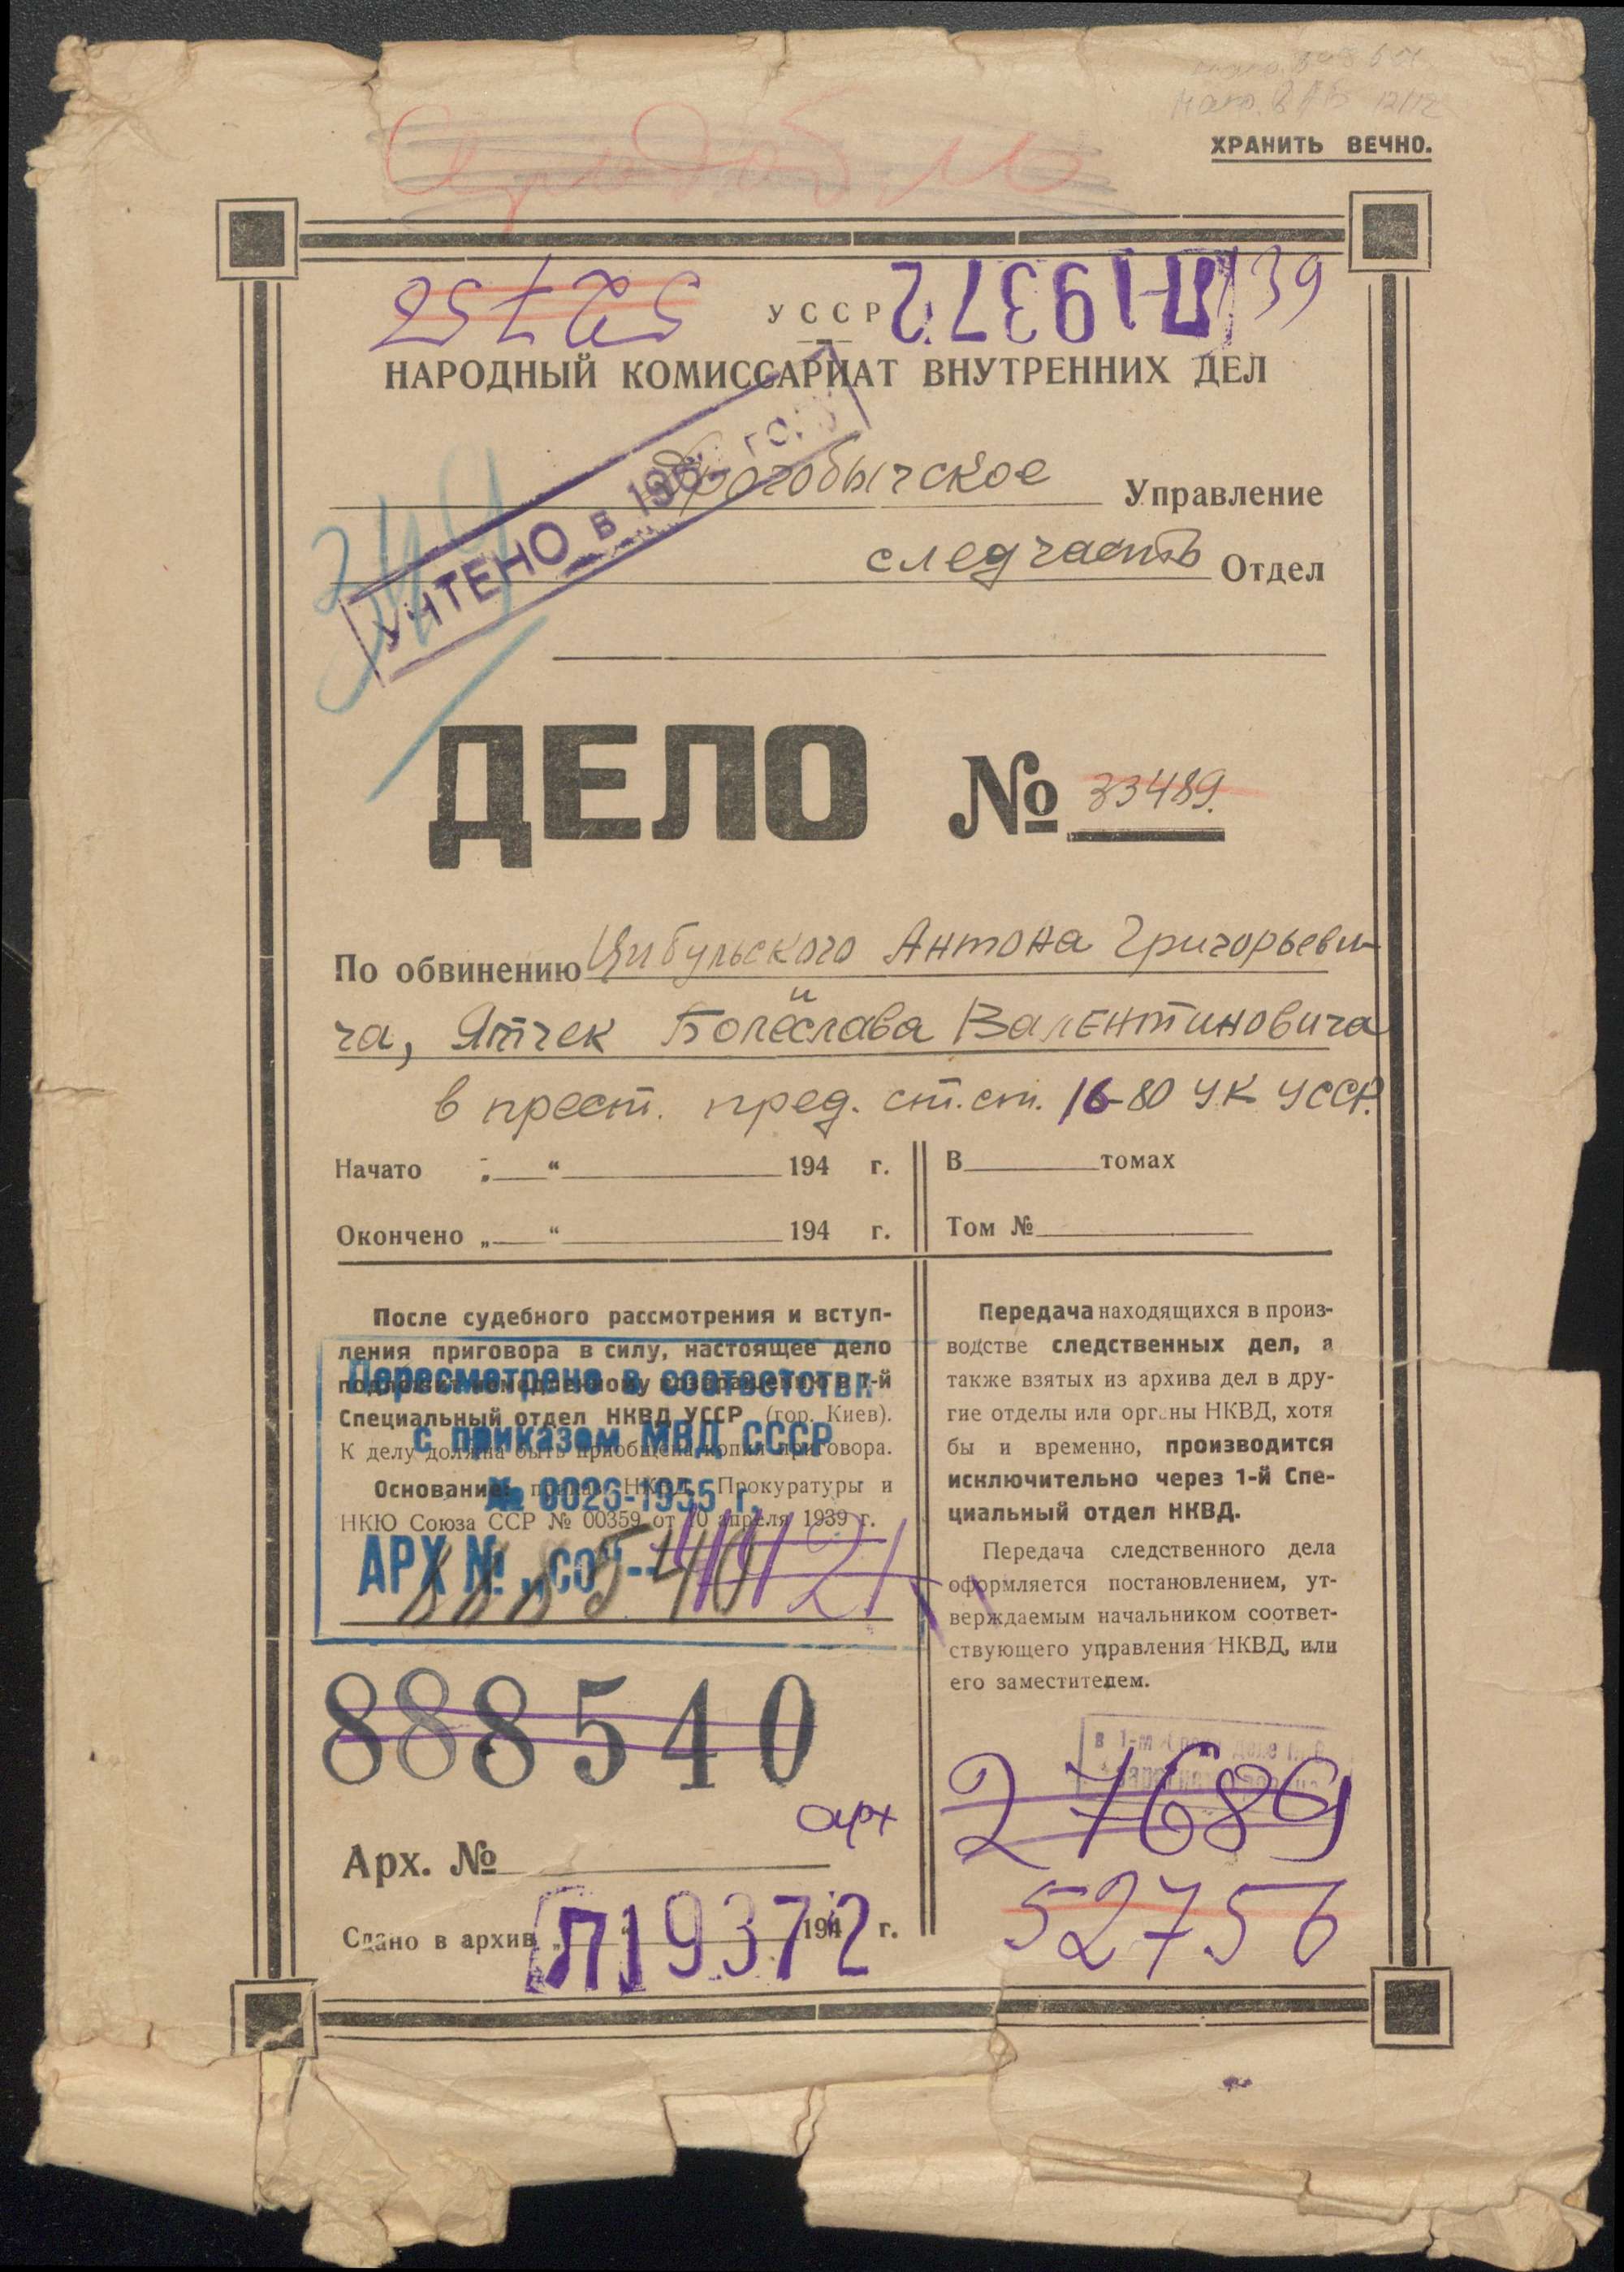 ХРАНИТЬ ВЕЧНО.
52757
УССР
П-19372
139
НАРОДНЫЙ КОМИССАРИАТ ВНУТРЕННИХ ДЕЛ
Дрогобычское Управление
следчасть Отдел
УЧТЕНО в 196 году
344
ДЕЛО № 33489.
По обвинению Цибульского Антона Григорьеви-
ча, и Яптчек Болеслава Валентиновича
в прест. пред. ст.ст. 16-80 УК УССР.
Начато „ “ 194 г.
Окончено „ “ 194 г.
В томах
Том №
После судебного рассмотрения и вступ-
ления приговора в силу, настоящее дело
подлежит немедленному возвращению в 1-й
Специальный отдел НКВД УССР (гор. Киев).
К делу должна быть приобщена копия приговора.
Основание: приказ НКВД, Прокуратуры и
НКЮ Союза ССР № 00359 от 10 апреля 1939 г.
Пересмотрено в соответств.
с приказом МВД СССР
№ 0026-1955 г.
АРХ № „СО"--
888540
888540
арх
Арх. №
Сдано в архив „ “ 194 г.
П19372
Передача находящихся в произ-
водстве следственных дел, а
также взятых из архива дел в дру-
гие отделы или органы НКВД, хотя
бы и временно, производится
исключительно через 1-й Спе-
циальный отдел НКВД.
Передача следственного дела
оформляется постановлением, ут-
верждаемым начальником соответ-
ствующего управления НКВД, или
его заместителем.
27689
52756